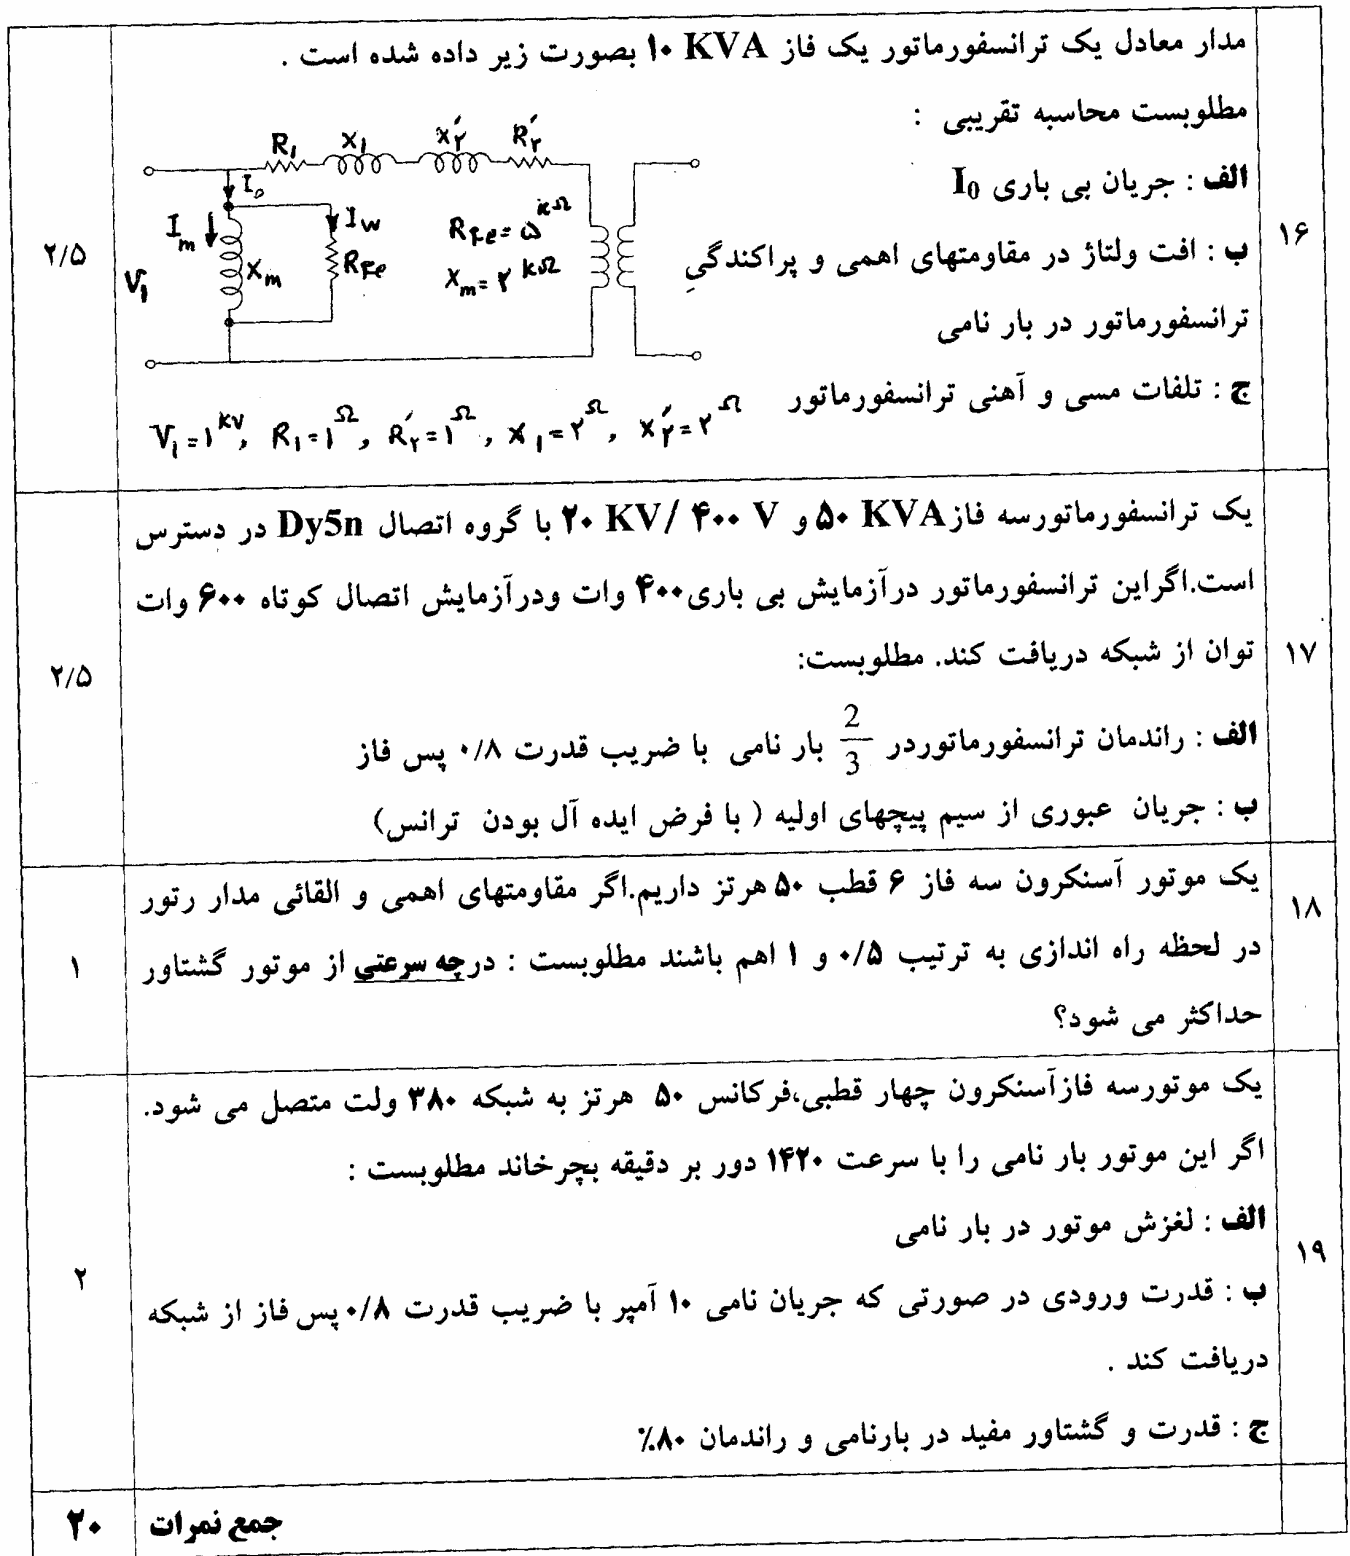 ۱۶
مدار معادل یک ترانسفورماتور یک فاز ۱۰ KVA بصورت زیر داده شده است .
مطلوبست محاسبه تقریبی :
الف : جریان بی باری I₀
ب : افت ولتاژ در مقاومتهای اهمی و پراکندگیِ
ترانسفورماتور در بار نامی
ج : تلفات مسی و آهنی ترانسفورماتور
R₁ X₁ X′۲ R′۲
I₀
I_m I_w
V₁ X_m R_Fe
R_Fe = ۵ kΩ
X_m = ۲ kΩ
V₁ = ۱ kV, R₁ = ۱ Ω, R′۲ = ۱ Ω, X₁ = ۲ Ω, X′۲ = ۲ Ω
۲/۵
۱۷
یک ترانسفورماتورسه فاز ۵۰ KVA و ۲۰ KV/ ۴۰۰ V با گروه اتصال Dy5n در دسترس
است.اگراین ترانسفورماتور درآزمایش بی باری۴۰۰ وات ودرآزمایش اتصال کوتاه ۶۰۰ وات
توان از شبکه دریافت کند. مطلوبست:
الف : راندمان ترانسفورماتوردر 2/3 بار نامی با ضریب قدرت ۰/۸ پس فاز
ب : جریان عبوری از سیم پیچهای اولیه ( با فرض ایده آل بودن ترانس)
۲/۵
۱۸
یک موتور آسنکرون سه فاز ۶ قطب ۵۰ هرتز داریم.اگر مقاومتهای اهمی و القائی مدار رتور
در لحظه راه اندازی به ترتیب ۰/۵ و ۱ اهم باشند مطلوبست : درچه سرعتی از موتور گشتاور
حداکثر می شود؟
۱
۱۹
یک موتورسه فازآسنکرون چهار قطبی،فرکانس ۵۰ هرتز به شبکه ۳۸۰ ولت متصل می شود.
اگر این موتور بار نامی را با سرعت ۱۴۲۰ دور بر دقیقه بچرخاند مطلوبست :
الف : لغزش موتور در بار نامی
ب : قدرت ورودی در صورتی که جریان نامی ۱۰ آمپر با ضریب قدرت ۰/۸ پس فاز از شبکه
دریافت کند .
ج : قدرت و گشتاور مفید در بارنامی و راندمان ۸۰٪
۲
جمع نمرات ۲۰